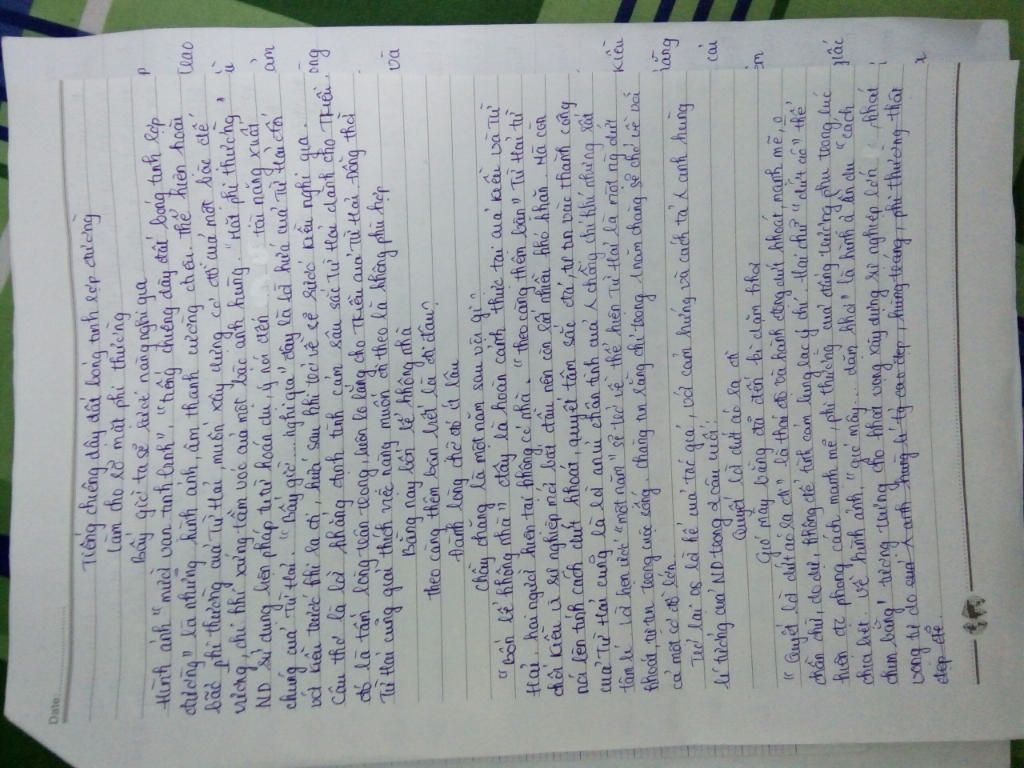 Date:
Tiếng chiêng dậy đất bóng tinh rợp đường
Làm cho rõ mặt phi thường
Bấy giờ ta sẽ rước nàng nghi gia
Hình ảnh "mười vạn tinh binh", "tiếng chiêng dậy đất bóng tinh rợp
đường" là những hình ảnh, âm thanh tượng trưng thể hiện hoài
bão phi thường của Từ Hải muốn xây dựng cơ đồ của một bậc đế
vương, chí khí xứng tầm vóc của một bậc anh hùng. "Mặt phi thường"
ND sử dụng biện pháp tu từ hoán dụ, ý nói đến tài năng xuất
chúng của Từ Hải. "Bấy giờ... nghi gia" đây là lời hứa của Từ Hải đối
với Kiều trước khi ra đi, hứa sau khi trở về sẽ rước Kiều nghi gia.
Câu thơ là lời khẳng định tình cảm sâu sắc Từ Hải dành cho Th.Kiều
đó là tấm lòng trân trọng, luôn lo lắng cho Th.Kiều của Từ Hải. Đồng thời
Từ Hải cũng giải thích việc nàng muốn đi theo là không phù hợp
Bằng nay bốn bể không nhà
Theo càng thêm bận biết là đi đâu?
Đành lòng chờ đó ít lâu
Chầy chăng là một năm sau vội gì?
"Bốn bể không nhà" đây là hoàn cảnh thực tại của Kiều và Từ
Hải, hai người hiện tại không có nhà. "Theo càng thêm bận" Từ Hải từ
chối Kiều vì sự nghiệp mới bắt đầu nên còn rất nhiều khó khăn. Mà còn
nói lên tính cách dứt khoát, quyết tâm sắt đá tự tin vào thành công
của Từ Hải cũng là lời an ủi chân tình của 1 chồng chi khi những sát
tâm lí. Lời hẹn ước "một năm" sẽ trở về thể hiện Từ Hải là một ng dứt
khoát, tự tin trong cuộc sống. chàng tin rằng chỉ trong 1 năm chàng sẽ trở về với
cả một cơ đồ lớn
Trở lại vs lời kể của tác giả, với cảm hứng và cách tả 1 anh hùng
lí tưởng của ND trong 2 câu cuối:
Quyết lời dứt áo ra đi
Gió mây bằng đã đến kì dặm khơi
"Quyết lời dứt áo ra đi" là thái độ và hành động dứt khoát mạnh mẽ, o
chần chừ, do dự, không để tình cảm lung lạc ý chí. Hai chữ "dứt áo" thể
hiện đc phong cách mạnh mẽ, phi thường của đấng trượng phu trong lúc
chia biệt. Về hình ảnh "gió mây... dặm khơi" là hình ả ẩn dụ "cách
chim bằng" tượng trưng cho khát vọng xây dựng sự nghiệp lớn, khát
vọng tự do của 1 anh hùng lí tg cao đẹp, hùng tráng, phi thường thật
đẹp đẽ.
và
Kiều
cái